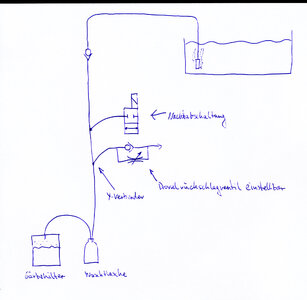 Nachtabschaltung
Drosselrückschlagventil einstellbar
Y-Verbinder
Gärbehälter
Waschflasche